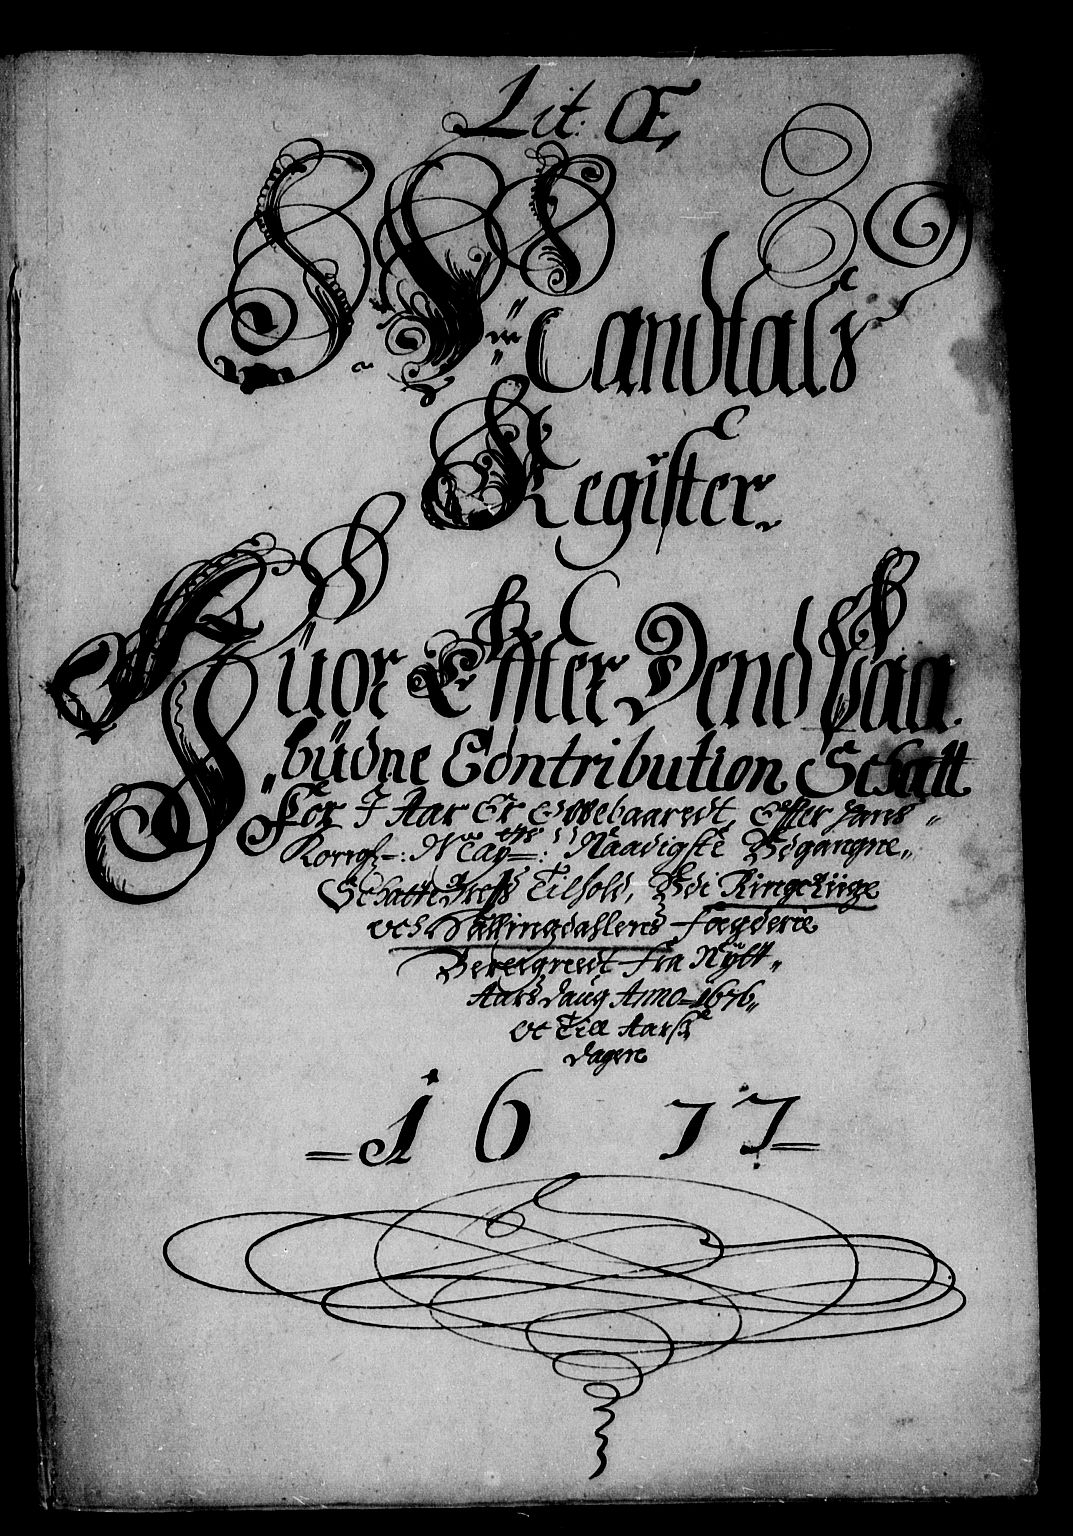 Lit. Œ
Mandtals
Register
Huor Effter Dend Paa
büdne Contribution Schatt
For I Aar Er Opebaaredt, Effter Hans
Kongl: May:tts Naadigste Udgangne
Schatte Brefs Tilhold, Udi Ringerige
och Hallingdahlens Fogderie
Beregnedt fra Nytt
Aars daug Anno 1676
oc Till Aarsz
dagen
1677